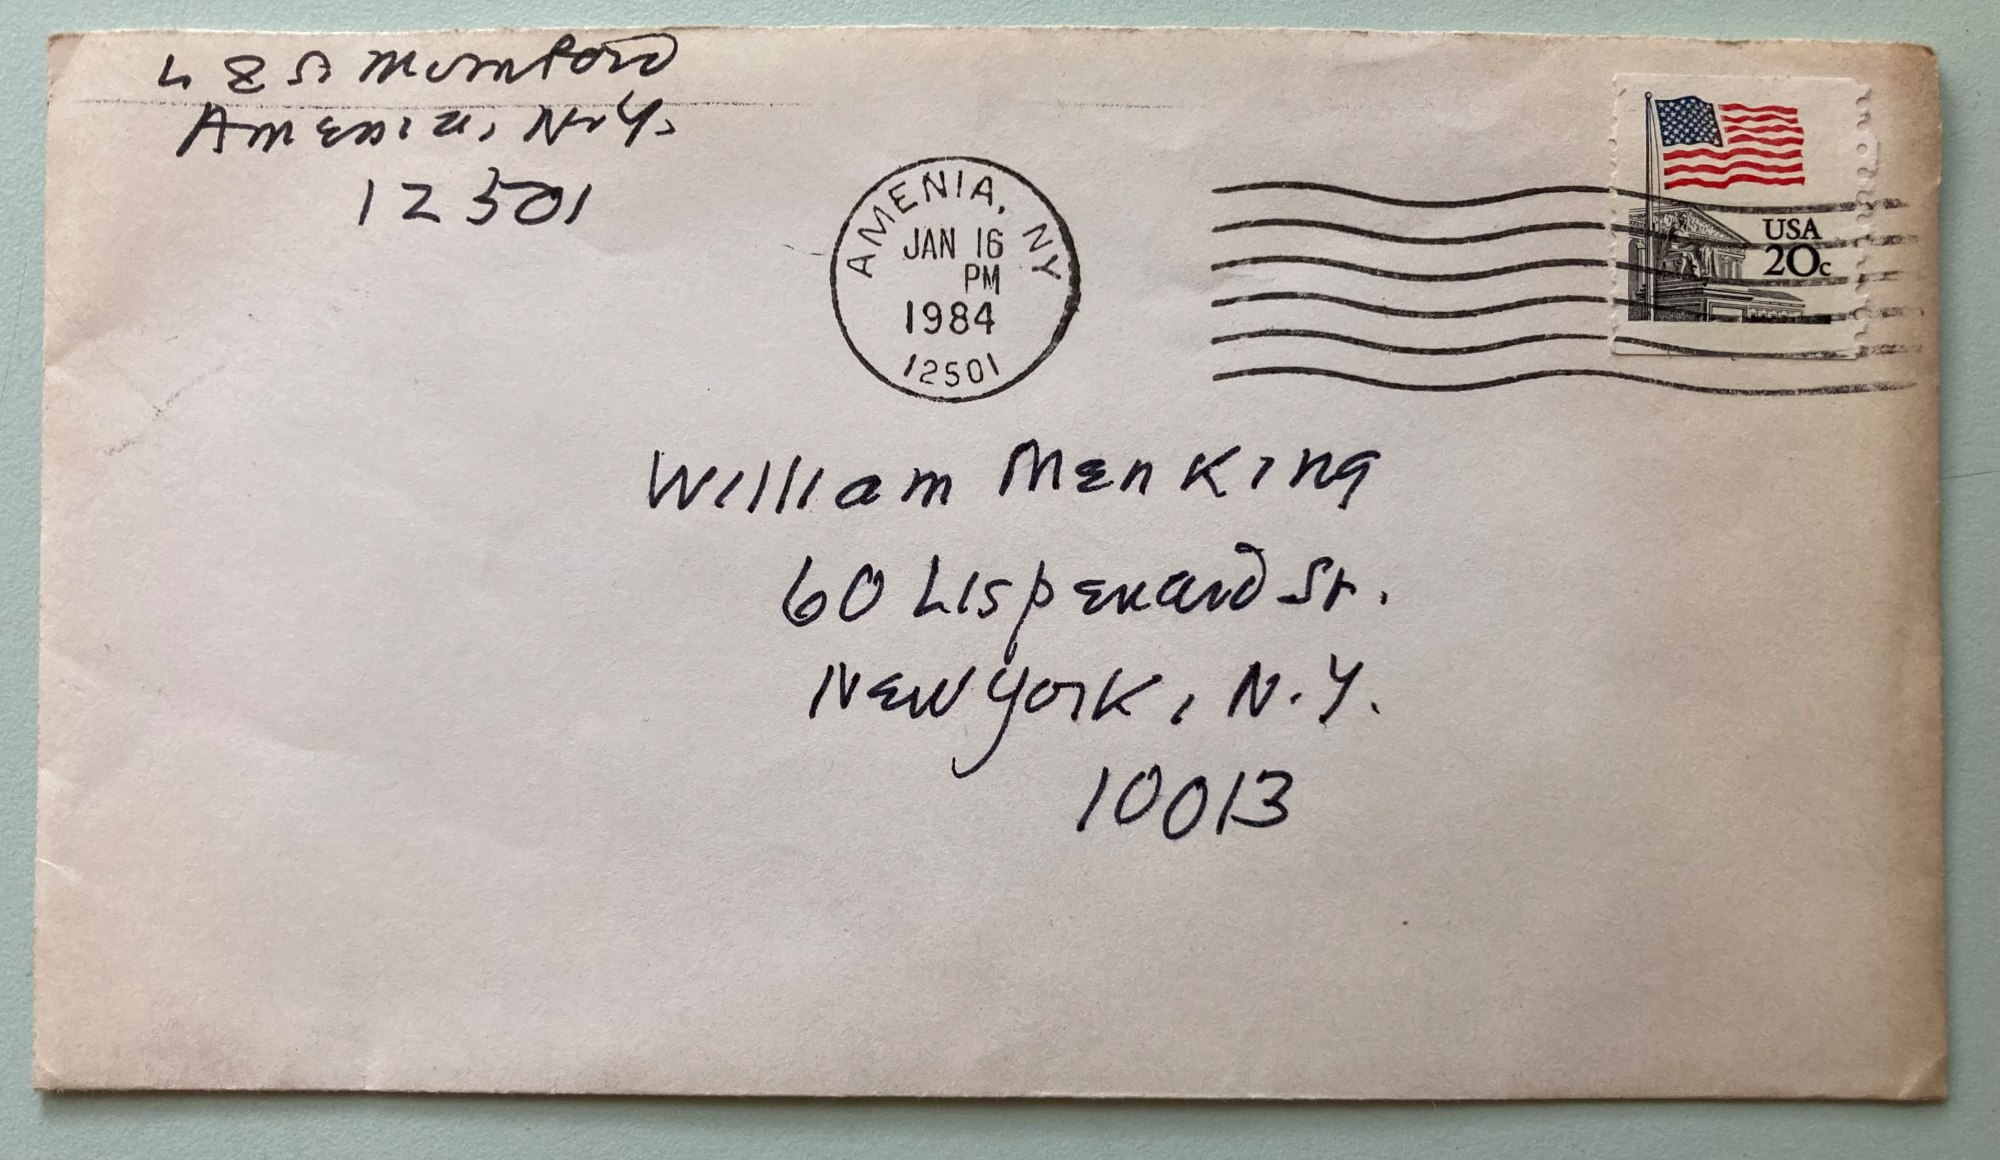 L & S Mumford
Amenia, N.Y.
12501
AMENIA, NY
JAN 16
PM
1984
12501
USA
20c
William Menking
60 Lispenard St.
New York, N.Y.
10013